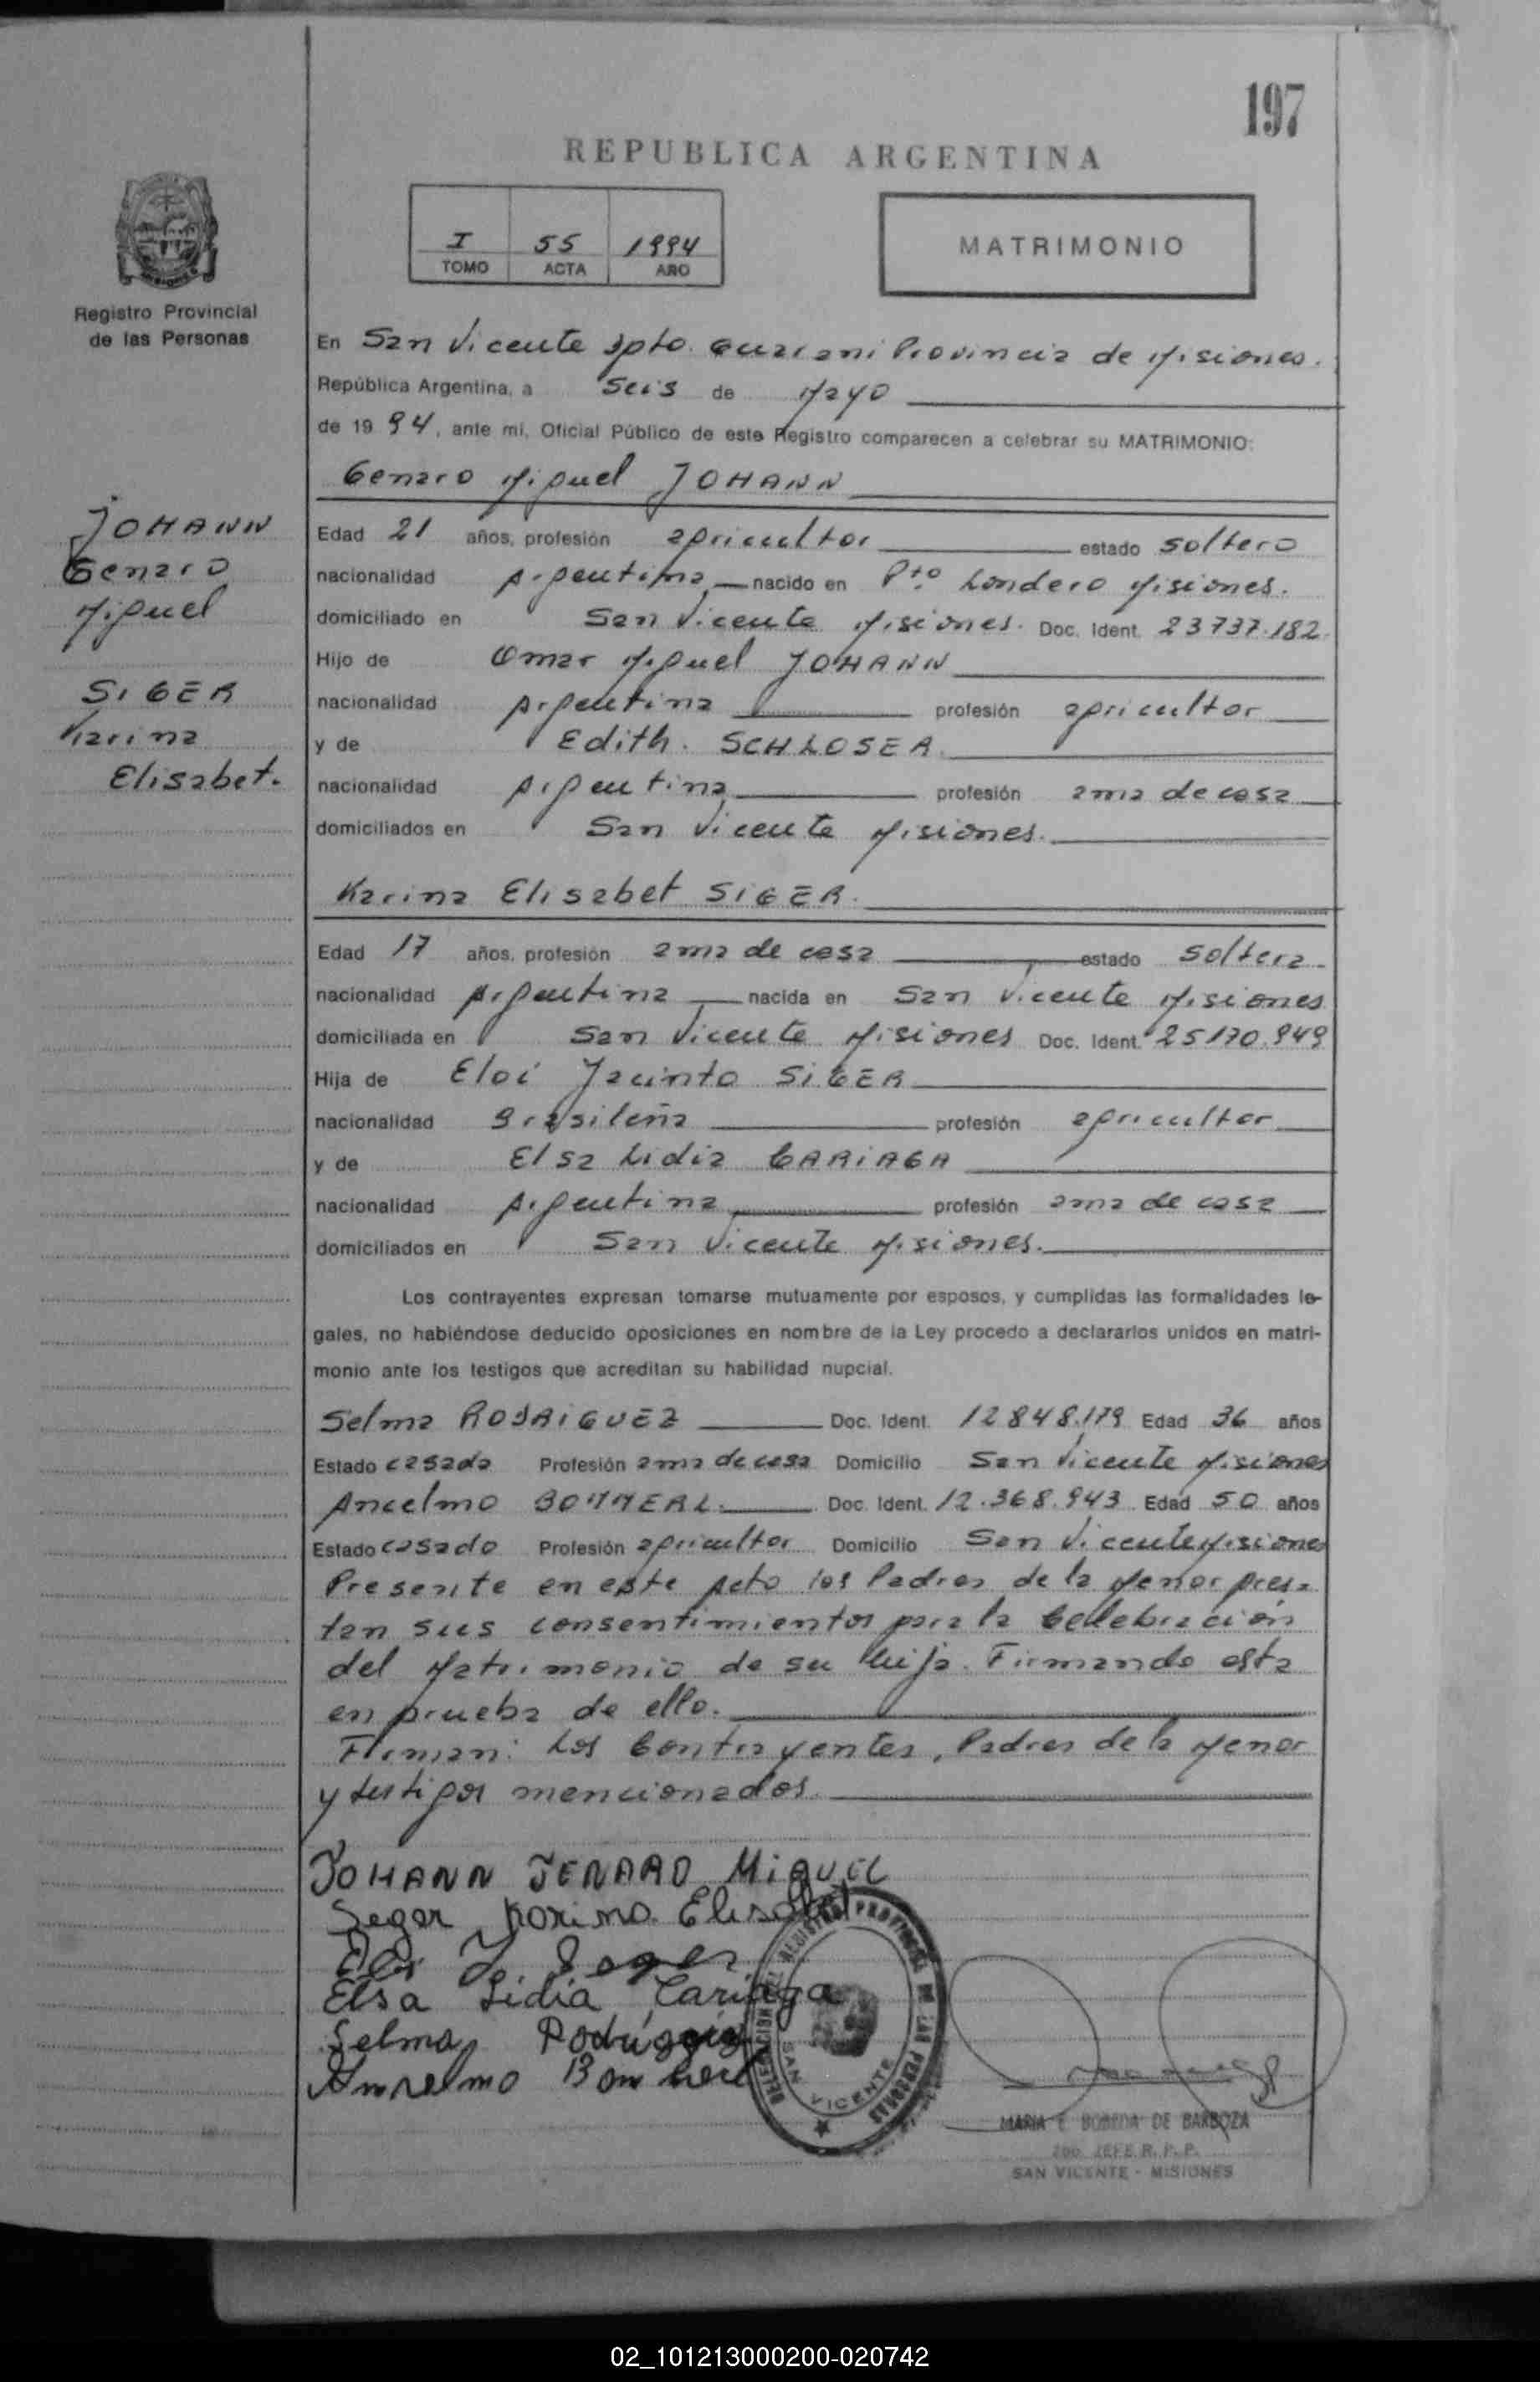 197
REPUBLICA ARGENTINA
I 55 1994
TOMO ACTA AÑO
MATRIMONIO
Registro Provincial
de las Personas
En San Vicente Dpto. Guarani Provincia de Misiones.
República Argentina, a Seis de Mayo
de 1994, ante mí, Oficial Público de este Registro comparecen a celebrar su MATRIMONIO:
Genaro Miguel JOHANN
JOHANN
Genaro
Miguel
SIGER
Karina
Elisabet.
Edad 21 años, profesión agricultor estado soltero
nacionalidad Argentina nacido en Pto Londero Misiones.
domiciliado en San Vicente Misiones. Doc. Ident. 23737.182
Hijo de Omar Miguel JOHANN
nacionalidad Argentina profesión agricultor
y de Edith. SCHLOSER
nacionalidad Argentina profesión ama de casa
domiciliados en San Vicente Misiones.
Karina Elisabet SIGER.
Edad 17 años, profesión ama de casa estado soltera
nacionalidad Argentina nacida en San Vicente Misiones
domiciliada en San Vicente Misiones Doc. Ident. 25170.949
Hija de Eloi Jacinto SIGER
nacionalidad Brasileña profesión agricultor
y de Elsa Lidia CARIAGA
nacionalidad Argentina profesión ama de casa
domiciliados en San Vicente Misiones.
Los contrayentes expresan tomarse mutuamente por esposos, y cumplidas las formalidades le-
gales, no habiéndose deducido oposiciones en nombre de la Ley procedo a declararlos unidos en matri-
monio ante los testigos que acreditan su habilidad nupcial.
Selma RODRIGUEZ Doc. Ident. 12848.179 Edad 36 años
Estado casada Profesión ama de casa Domicilio San Vicente Misiones
Ancelmo BOMMERL. Doc. Ident. 12.368.943 Edad 50 años
Estado casado Profesión agricultor Domicilio San Vicente Misiones
Presente en este Acto los Padres de la Menor pres=
tan sus consentimientos para la Celebración
del Matrimonio de su hija. Firmando esta
en prueba de ello.
Firman: Los Contrayentes, Padres de la Menor
y testigos mencionados.
JOHANN JENARO MiGUEL
Seger Karina Elisabet
Eloi J. Seger
Elsa Lidia Cariaga
Selma Rodriguez
DELEGACION DEL REGISTRO PROVINCIAL DE LAS PERSONAS
SAN VICENTE
MARIA E. BOBEDA DE BARBOZA
2DO. JEFE R. P. P.
SAN VICENTE - MISIONES
02_101213000200-020742